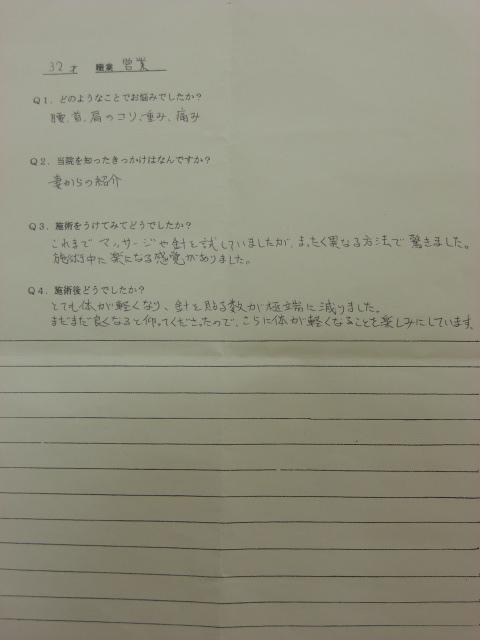 32才 職業 営業
Q1．どのようなことでお悩みでしたか？
腰、首、肩のコリ、重み、痛み
Q2．当院を知ったきっかけはなんですか？
妻からの紹介
Q3．施術をうけてみてどうでしたか？
これまでマッサージや針を試していましたが、まったく異なる方法で驚きました。
施術中に楽になる感覚がありました。
Q4．施術後どうでしたか？
とても体が軽くなり、針を貼る数が極端に減りました。
まだまだ良くなると仰ってくださったので、さらに体が軽くなることを楽しみにしています。